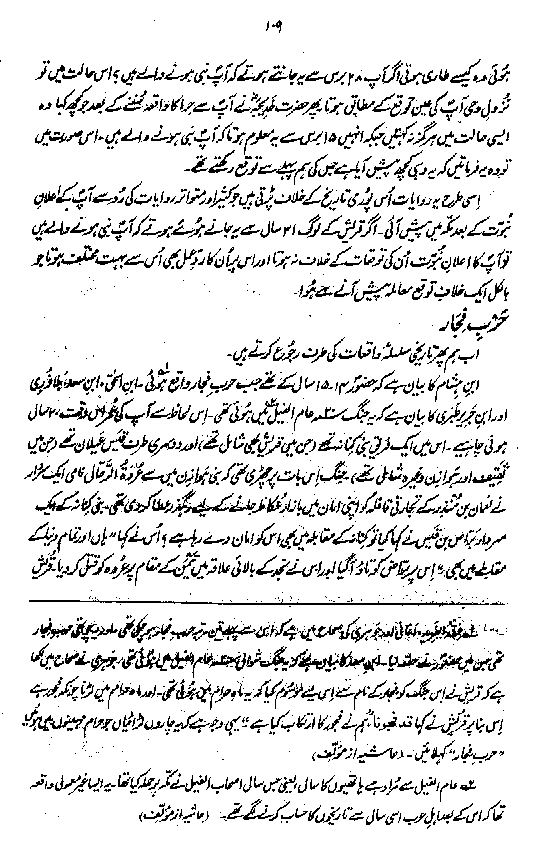 ۱۰۹
ہوئی وہ کیسے طاری ہوئی اگر آپ ۲۸ برس سے یہ جانتے ہوتے کہ آپ نبی ہونے والے ہیں؟ اس حالت میں تو
نزولِ وحی آپ کی عین توقع کے مطابق ہوتا۔ پھر حضرت خدیجہؓ نے آپ سے حرا کا واقعہ سُننے کے بعد جو کچھ کہا وہ
ایسی حالت میں ہرگز نہ کہتیں جبکہ انہیں ۱۵ برس سے یہ معلوم ہوتا کہ آپ نبی ہونے والے ہیں۔ اس صورت میں
تو وہ یہ فرماتیں کہ یہ وہی کچھ پیش آیا ہے جس کی ہم پہلے سے توقع رکھتے تھے۔
اسی طرح یہ روایات اُس پوری تاریخ کے خلاف پڑتی ہیں جو کثیر اور متواتر روایات کی رُو سے آپ کے اعلانِ
نبوت کے بعد مکہ میں پیش آئی۔ اگر قریش کے لوگ ۳۱ سال سے یہ جانے ہوئے ہوتے کہ آپ نبی ہونے والے ہیں
تو آپ کا اعلانِ نبوت اُن کی توقعات کے خلاف نہ ہوتا اور اس پر اُن کا ردِ عمل بھی اُس سے بہت مختلف ہوتا جو
بالکل ایک خلافِ توقع معاملہ پیش آنے سے ہوا۔
حربِ فجار
اب ہم پھر تاریخی سلسلۂ واقعات کی طرف رجوع کرتے ہیں۔
ابن ہشام کا بیان ہے کہ حضورؐ ۱۴، ۱۵ سال کے تھے جب حربِ فجار واقع ہوئی۔ ابن اسحٰق، ابن سعد، بلاذُری
اور ابن جریر طبری کا بیان ہے کہ یہ جنگ سنہ عام الفیل میں ہوئی تھی۔ اس لحاظ سے آپ کی عمر اس وقت ۲۰ سال
ہونی چاہیے۔ اس میں ایک فریق بنی کنانہ تھے (جن میں قریش بھی شامل تھے)، اور دوسری طرف قیس عیلان تھے (جن میں
ثقیف اور ہوازن وغیرہ شامل تھے)۔ جنگ اس بات پر چھڑی تھی کہ بنی ہوازن میں سے عروۃ الرحّال نامی ایک سردار
نے نعمان بن منذر کے تجارتی قافلہ کو اپنی امان میں بازارِ عکاظ جانے کے لیے رہگزر عطا کر دی تھی۔ بنی کنانہ کے ایک
سردار برّاض بن قیس نے کہا کیا تو کنانہ کے مقابلہ میں بھی اس کو امان دے رہا ہے؟ اُس نے کہا "ہاں اور تمام دنیا کے
مقابلے میں بھی"۔ اس پر برّاض کو تاؤ آ گیا اور اس نے نجد کے بالائی علاقہ میں تیمن کے مقام پر عروہ کو قتل کر دیا۔ قریش
جوہری کی صحاح میں ہے کہ اس سے پہلے تین مرتبہ حربِ فجار ہو چکی تھی
جوہری نے صحاح میں لکھا
ہے کہ قریش نے اس جنگ کو فجار کے نام سے اس لیے موسوم کیا کہ یہ ماہِ حرام میں ہوئی تھی۔ اور ماہِ حرام میں لڑنا چونکہ فجور ہے
اس بنا پر قریش نے کہا قد فجرنا "ہم نے فجور کا ارتکاب کیا ہے"۔ یہی وجہ ہے کہ یہ چاروں لڑائیاں جو حرام مہینوں میں ہوئیں
"حربِ فجار" کہلائیں۔ (حاشیہ از مؤلف)
عام الفیل سے مراد ہے ہاتھیوں کا سال، یعنی جس سال اصحاب الفیل نے مکہ پر حملہ کیا تھا۔ یہ ایسا غیر معمولی واقعہ
تھا کہ اس کے بعد اہلِ عرب اسی سال سے تاریخوں کا حساب کرنے لگے تھے۔ (حاشیہ از مؤلف)